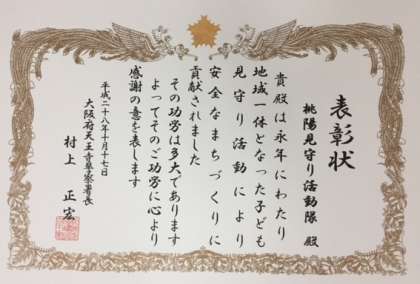 表彰状
桃陽見守り活動隊 殿
貴殿は永年にわたり
地域一体となった子ども
見守り活動により
安全なまちづくりに
貢献されました
その功労は多大であります
よってそのご功労に心より
感謝の意を表します
平成二十八年十月十七日
大阪府天王寺警察署長
村上 正宏